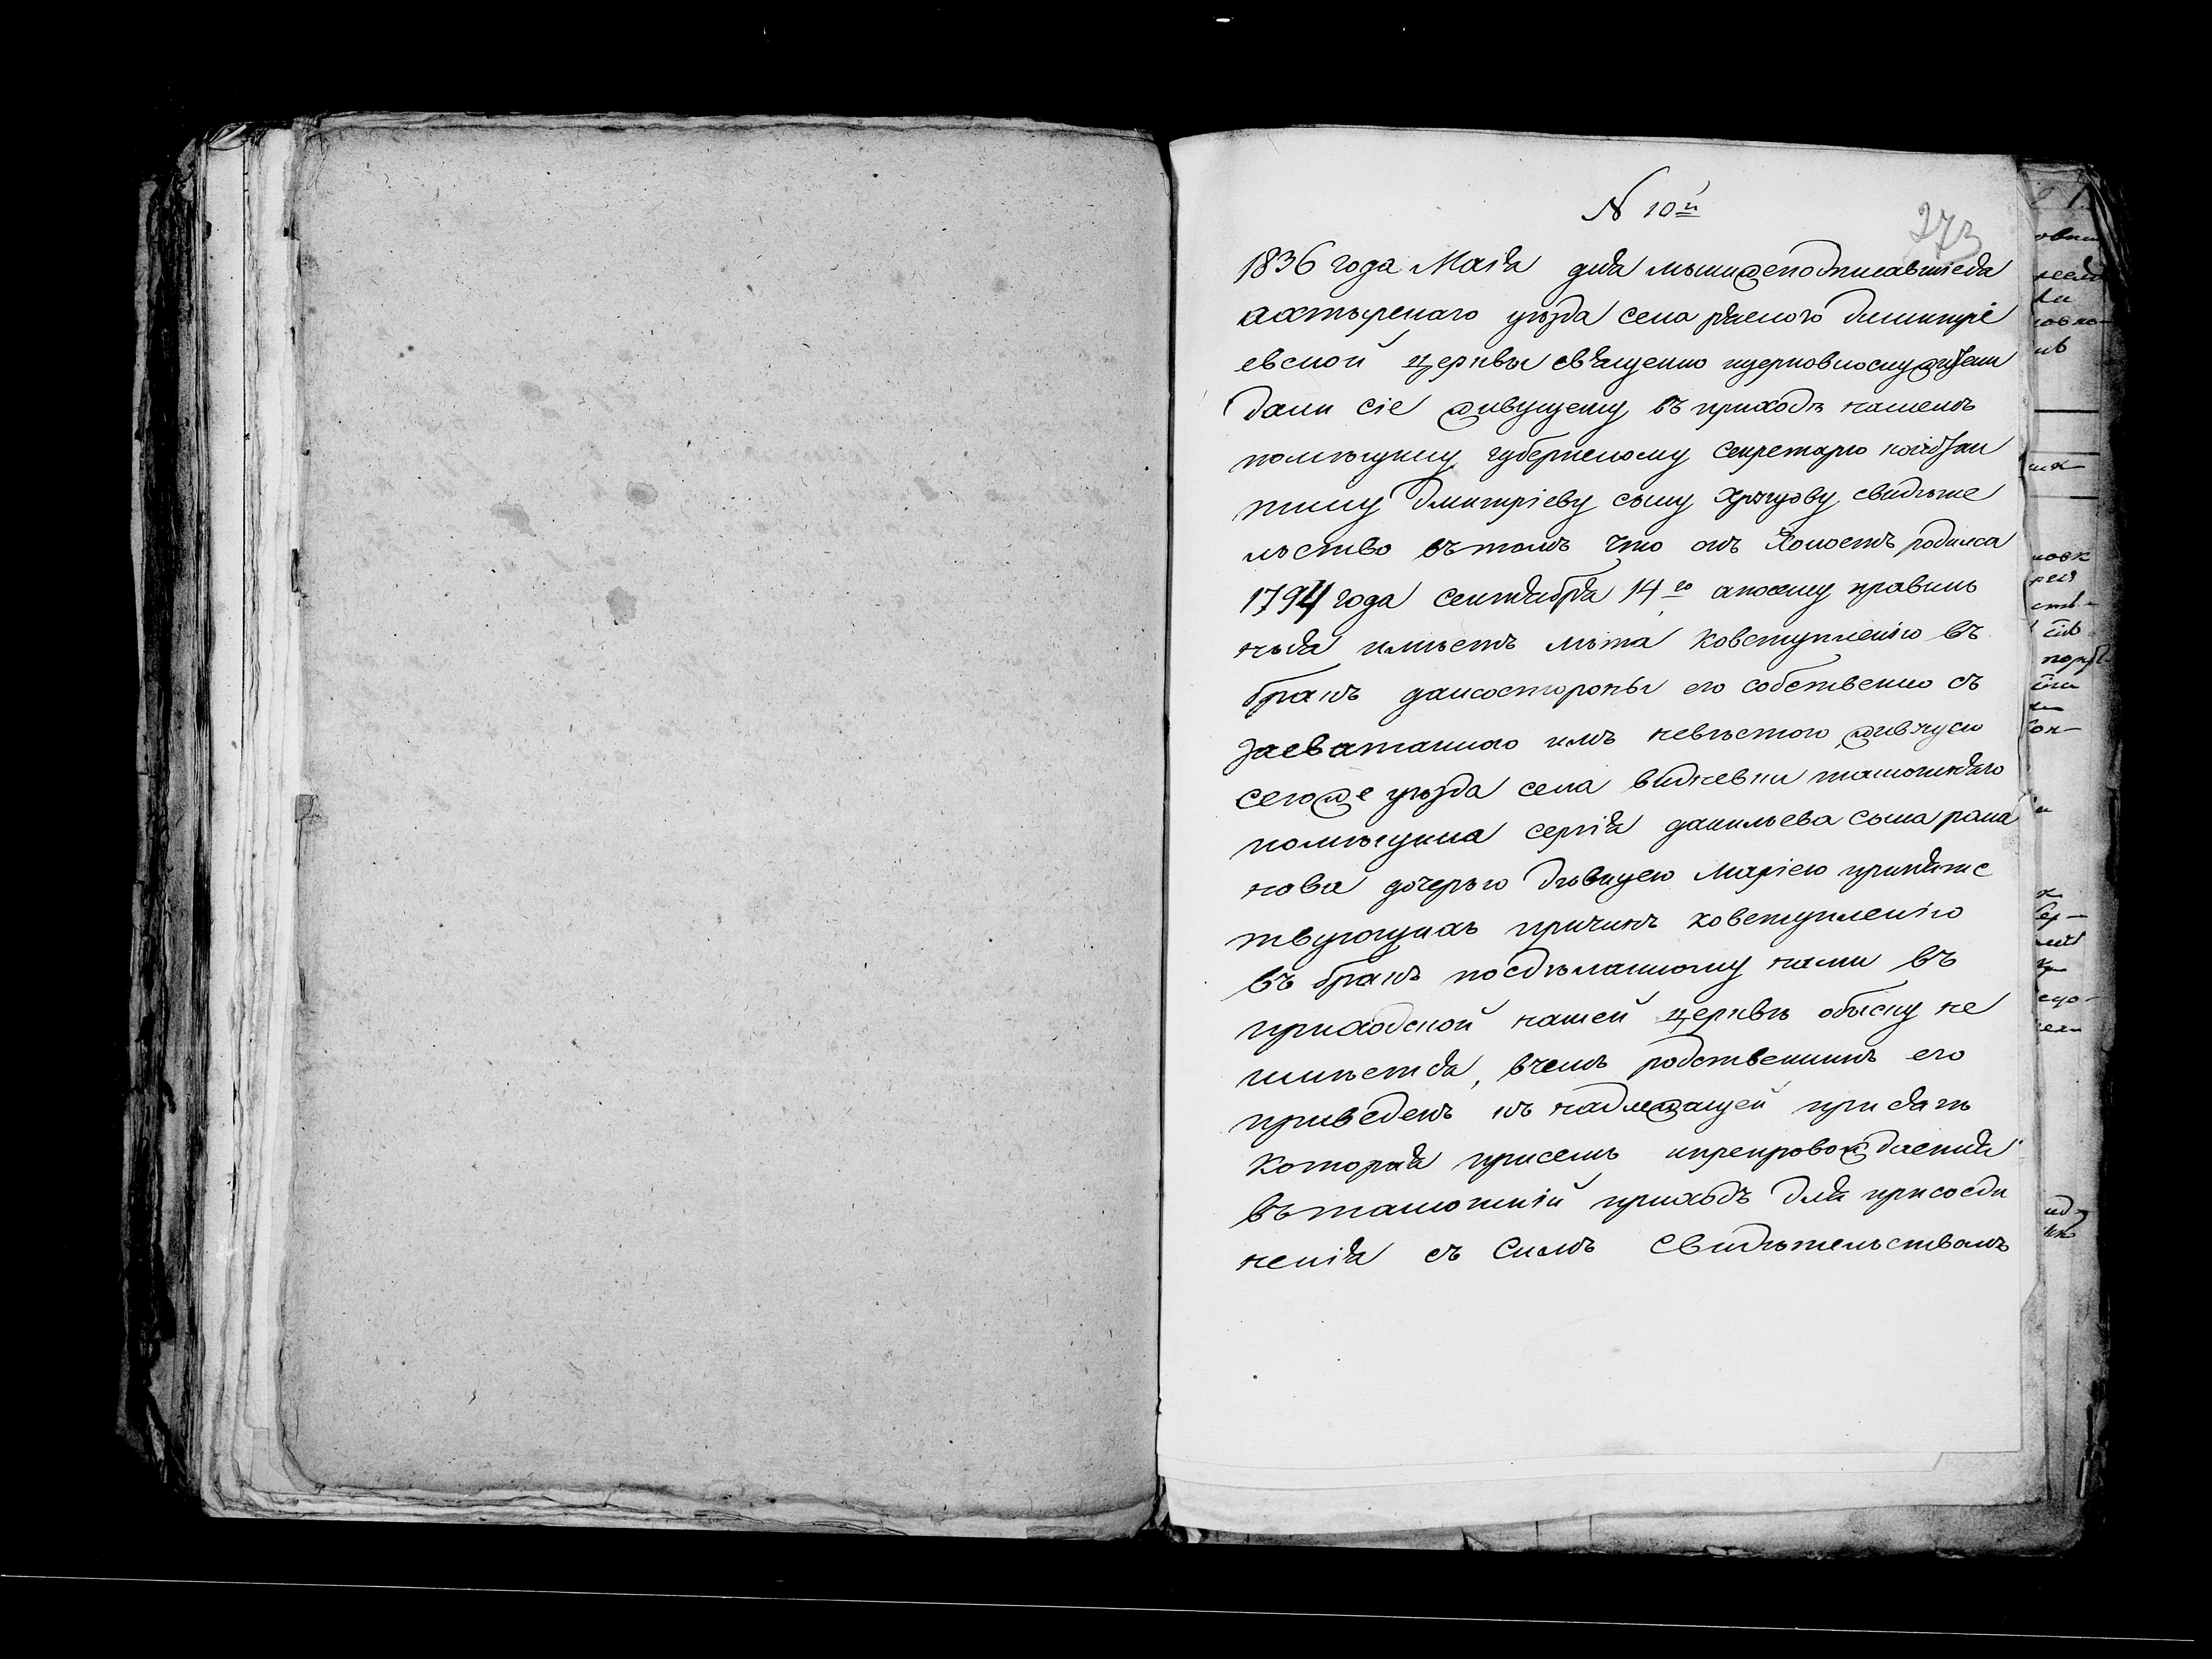 N 10й
273
1836 года Маія дня мыниженодписавшіеся
ахтырскаго уѣзда села рясного димитріе
евской церквы священно ицерковнослужители
дали сіе живущему въ приходѣ нашемъ
помѣщику губернскому секретарю констан
тину дмитріеву сыну свидѣте
льство вътомъ что онъ Холостъ родился
1794 года сентября 14го апосему правиль
ныя имѣетъ лѣта ковступленію въ
бракъ даисостороны его собственно съ
засватанною имъ невѣстою живущею
сегоже уѣзда села тамошняго
помѣщика сергія данильева сына рома
нова дочерью дѣвицею Маріею препятс
твующихъ причинъ ковступленію
въ бракъ посдѣланному нами въ
приходской нашей церквѣ обыску не
имѣется, вчемъ родственникъ его
приведенъ къ надлежащей присягѣ
которая присемъ ипрепровождается
вътамошній приходъ для присоеди
ненія съ Симъ Свидѣтельствомъ